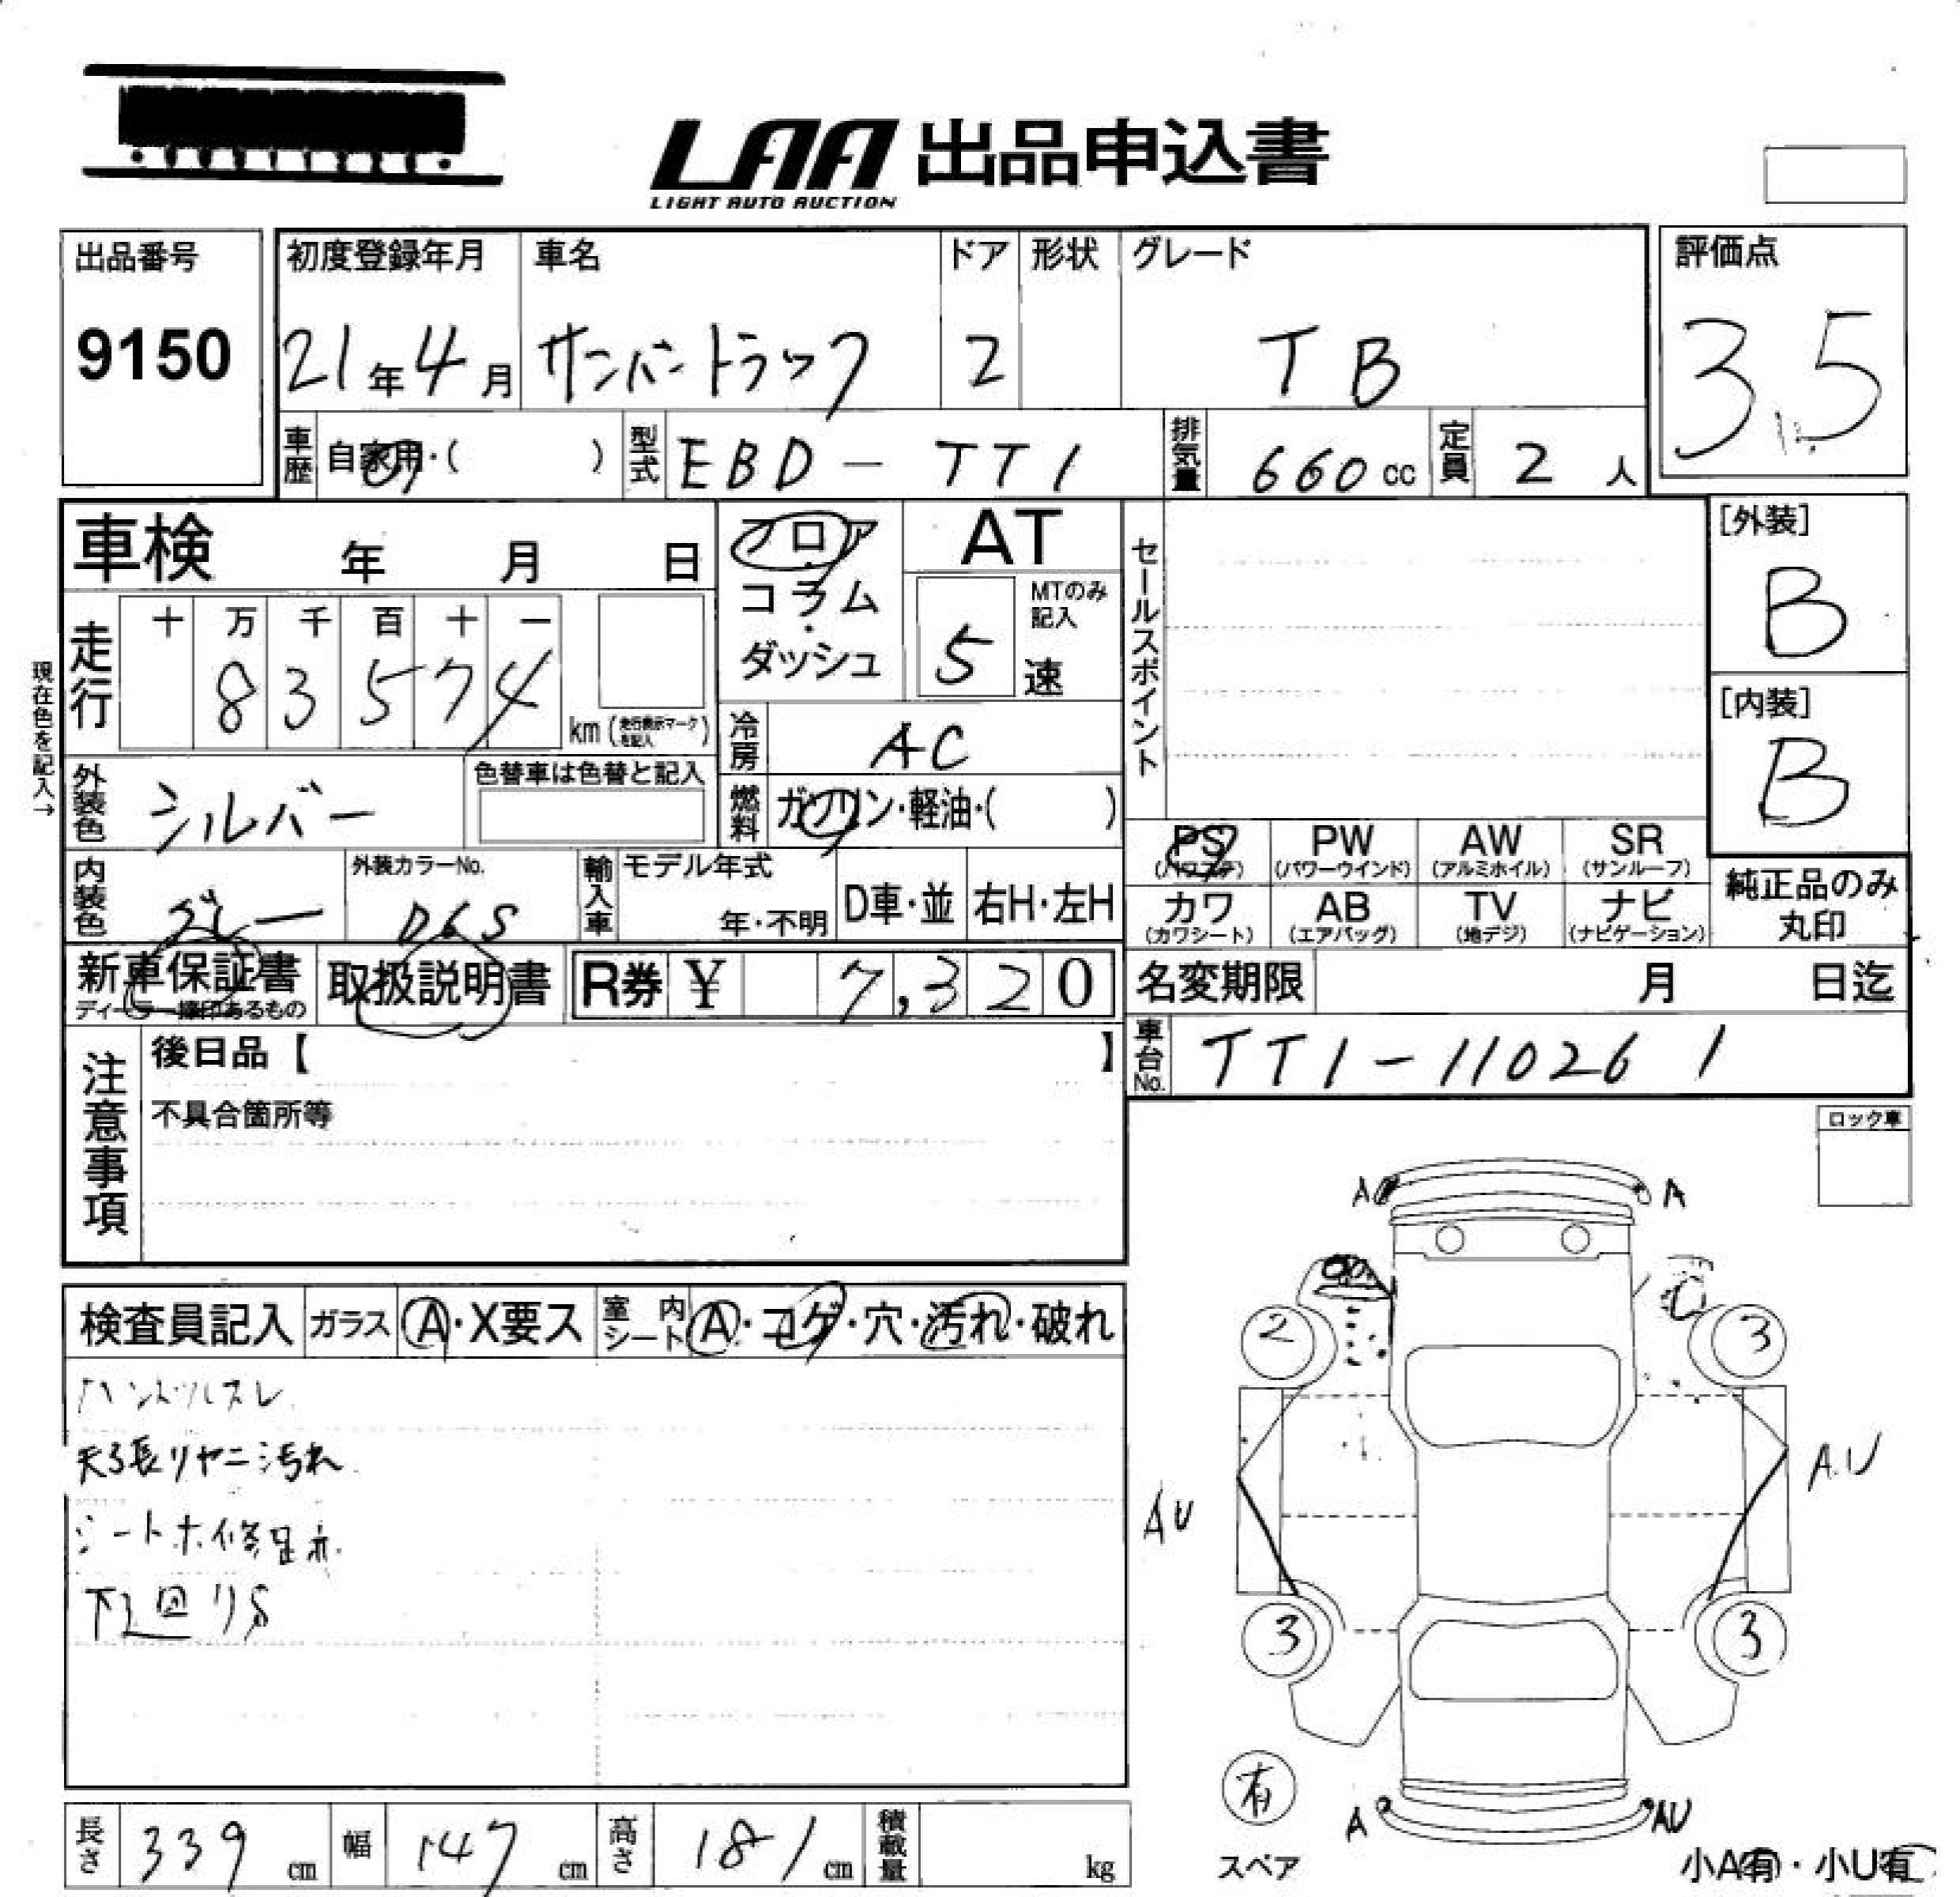 LAA 出品申込書
LIGHT AUTO AUCTION
出品番号 初度登録年月 車名 ドア 形状 グレード 評価点
9150 21年4月 サンバートラック 2 TB 3.5
車歴 自家用・( ) 型式 EBD-TT1 排気量 660cc 定員 2人
車検 年 月 日 フロア・コラム・ダッシュ AT セールスポイント [外装]
B
現在色を記入→
走行 十 万 千 百 十 一 MTのみ記入
83574 km (走行表示マークを記入) 5速 [内装]
B
冷房 AC
外装色 シルバー 色替車は色替と記入 燃料 ガソリン・軽油・( )
PS PW AW SR
(パワステ) (パワーウインド) (アルミホイル) (サンルーフ)
内装色 グレー 外装カラーNo. D6S 輸入車 モデル年式 年・不明 D車・並 右H・左H
カワ AB TV ナビ 純正品のみ
(カワシート) (エアバッグ) (地デジ) (ナビゲーション) 丸印
新車保証書 取扱説明書 R券 ¥ 7,320 名変期限 月 日迄
ディーラー捺印あるもの
車台No. TT1-110261
注意事項 後日品【 】
不具合箇所等
ロック車
A A
検査員記入 ガラス A・X要ス 室内シート A・コゲ・穴・汚れ・破れ
2 3
ハンドルスレ
天張りヤニ汚れ
AU AU
シートホ修
下廻りS
3 3
有
スペア
A AU
長さ 339cm 幅 147cm 高さ 181cm 積載量 kg
小A有・小U有